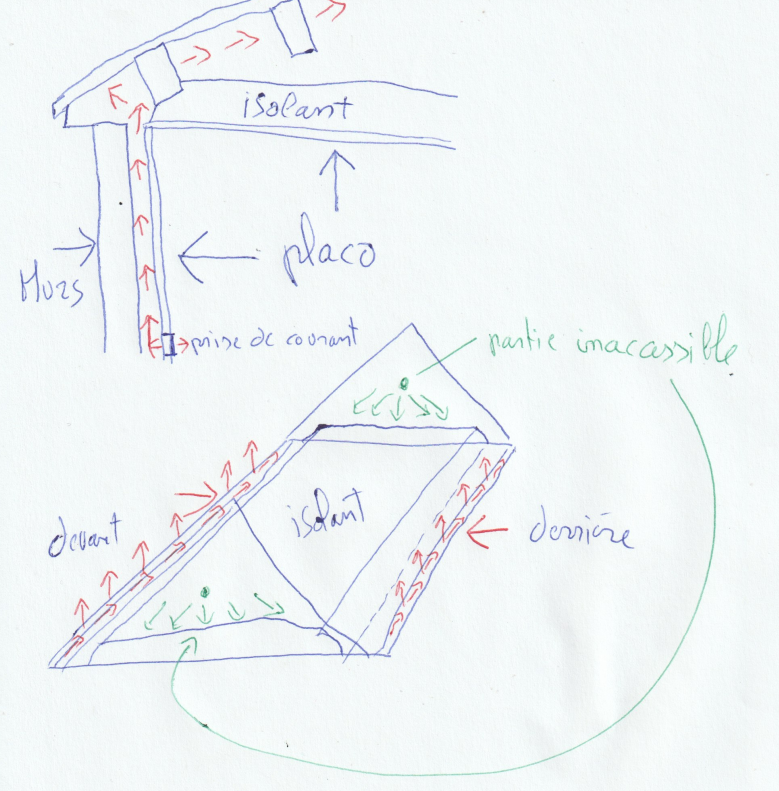 isolant
placo
Murs
prise de courant
partie inacassible
devant
isolant
derrière